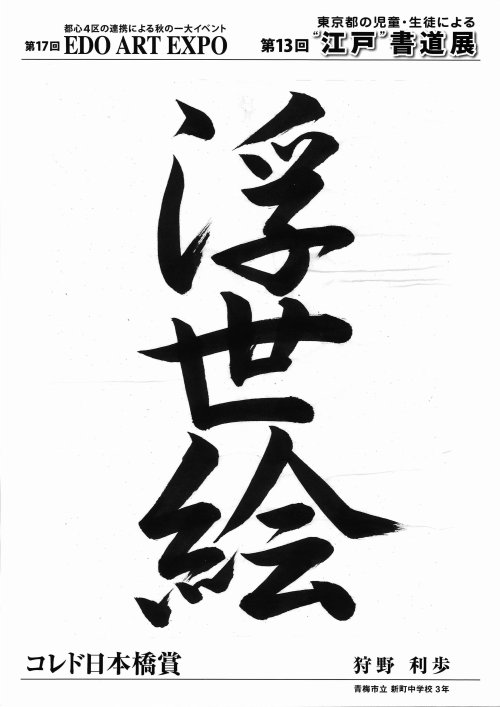 都心4区の連携による秋の一大イベント
第17回 EDO ART EXPO
東京都の児童・生徒による
第13回 “江戸”書道展
浮世絵
コレド日本橋賞
狩野 利歩
青梅市立 新町中学校 3年